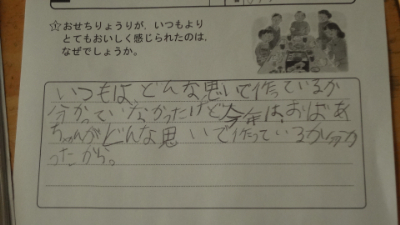 おせちりょうりが、いつもより
とてもおいしく感じられたのは、
なぜでしょうか。
いつもは、どんな思いで作っているか
分かっていなかったけど今年は、おばあ
ちゃんがどんな思いで作っているか分か
ったから。